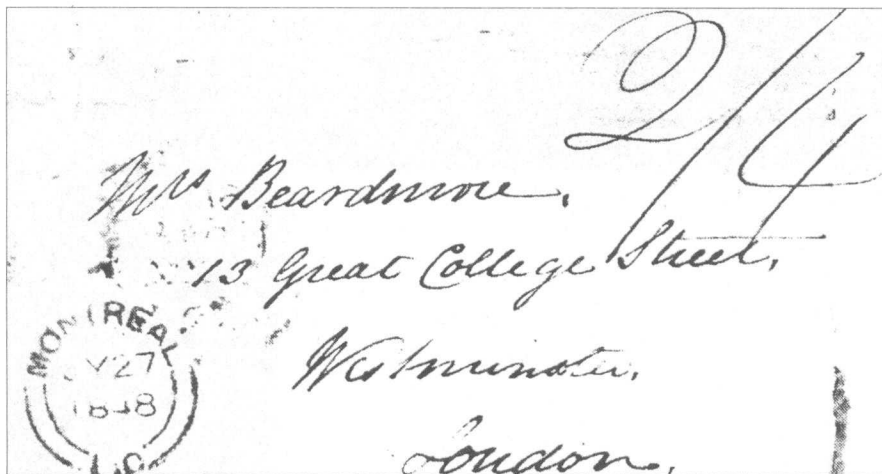 2/4
Mrs Beardmore,
13 Great College Street,
Westminster,
London,
MONTREAL
27
1848
L.C.